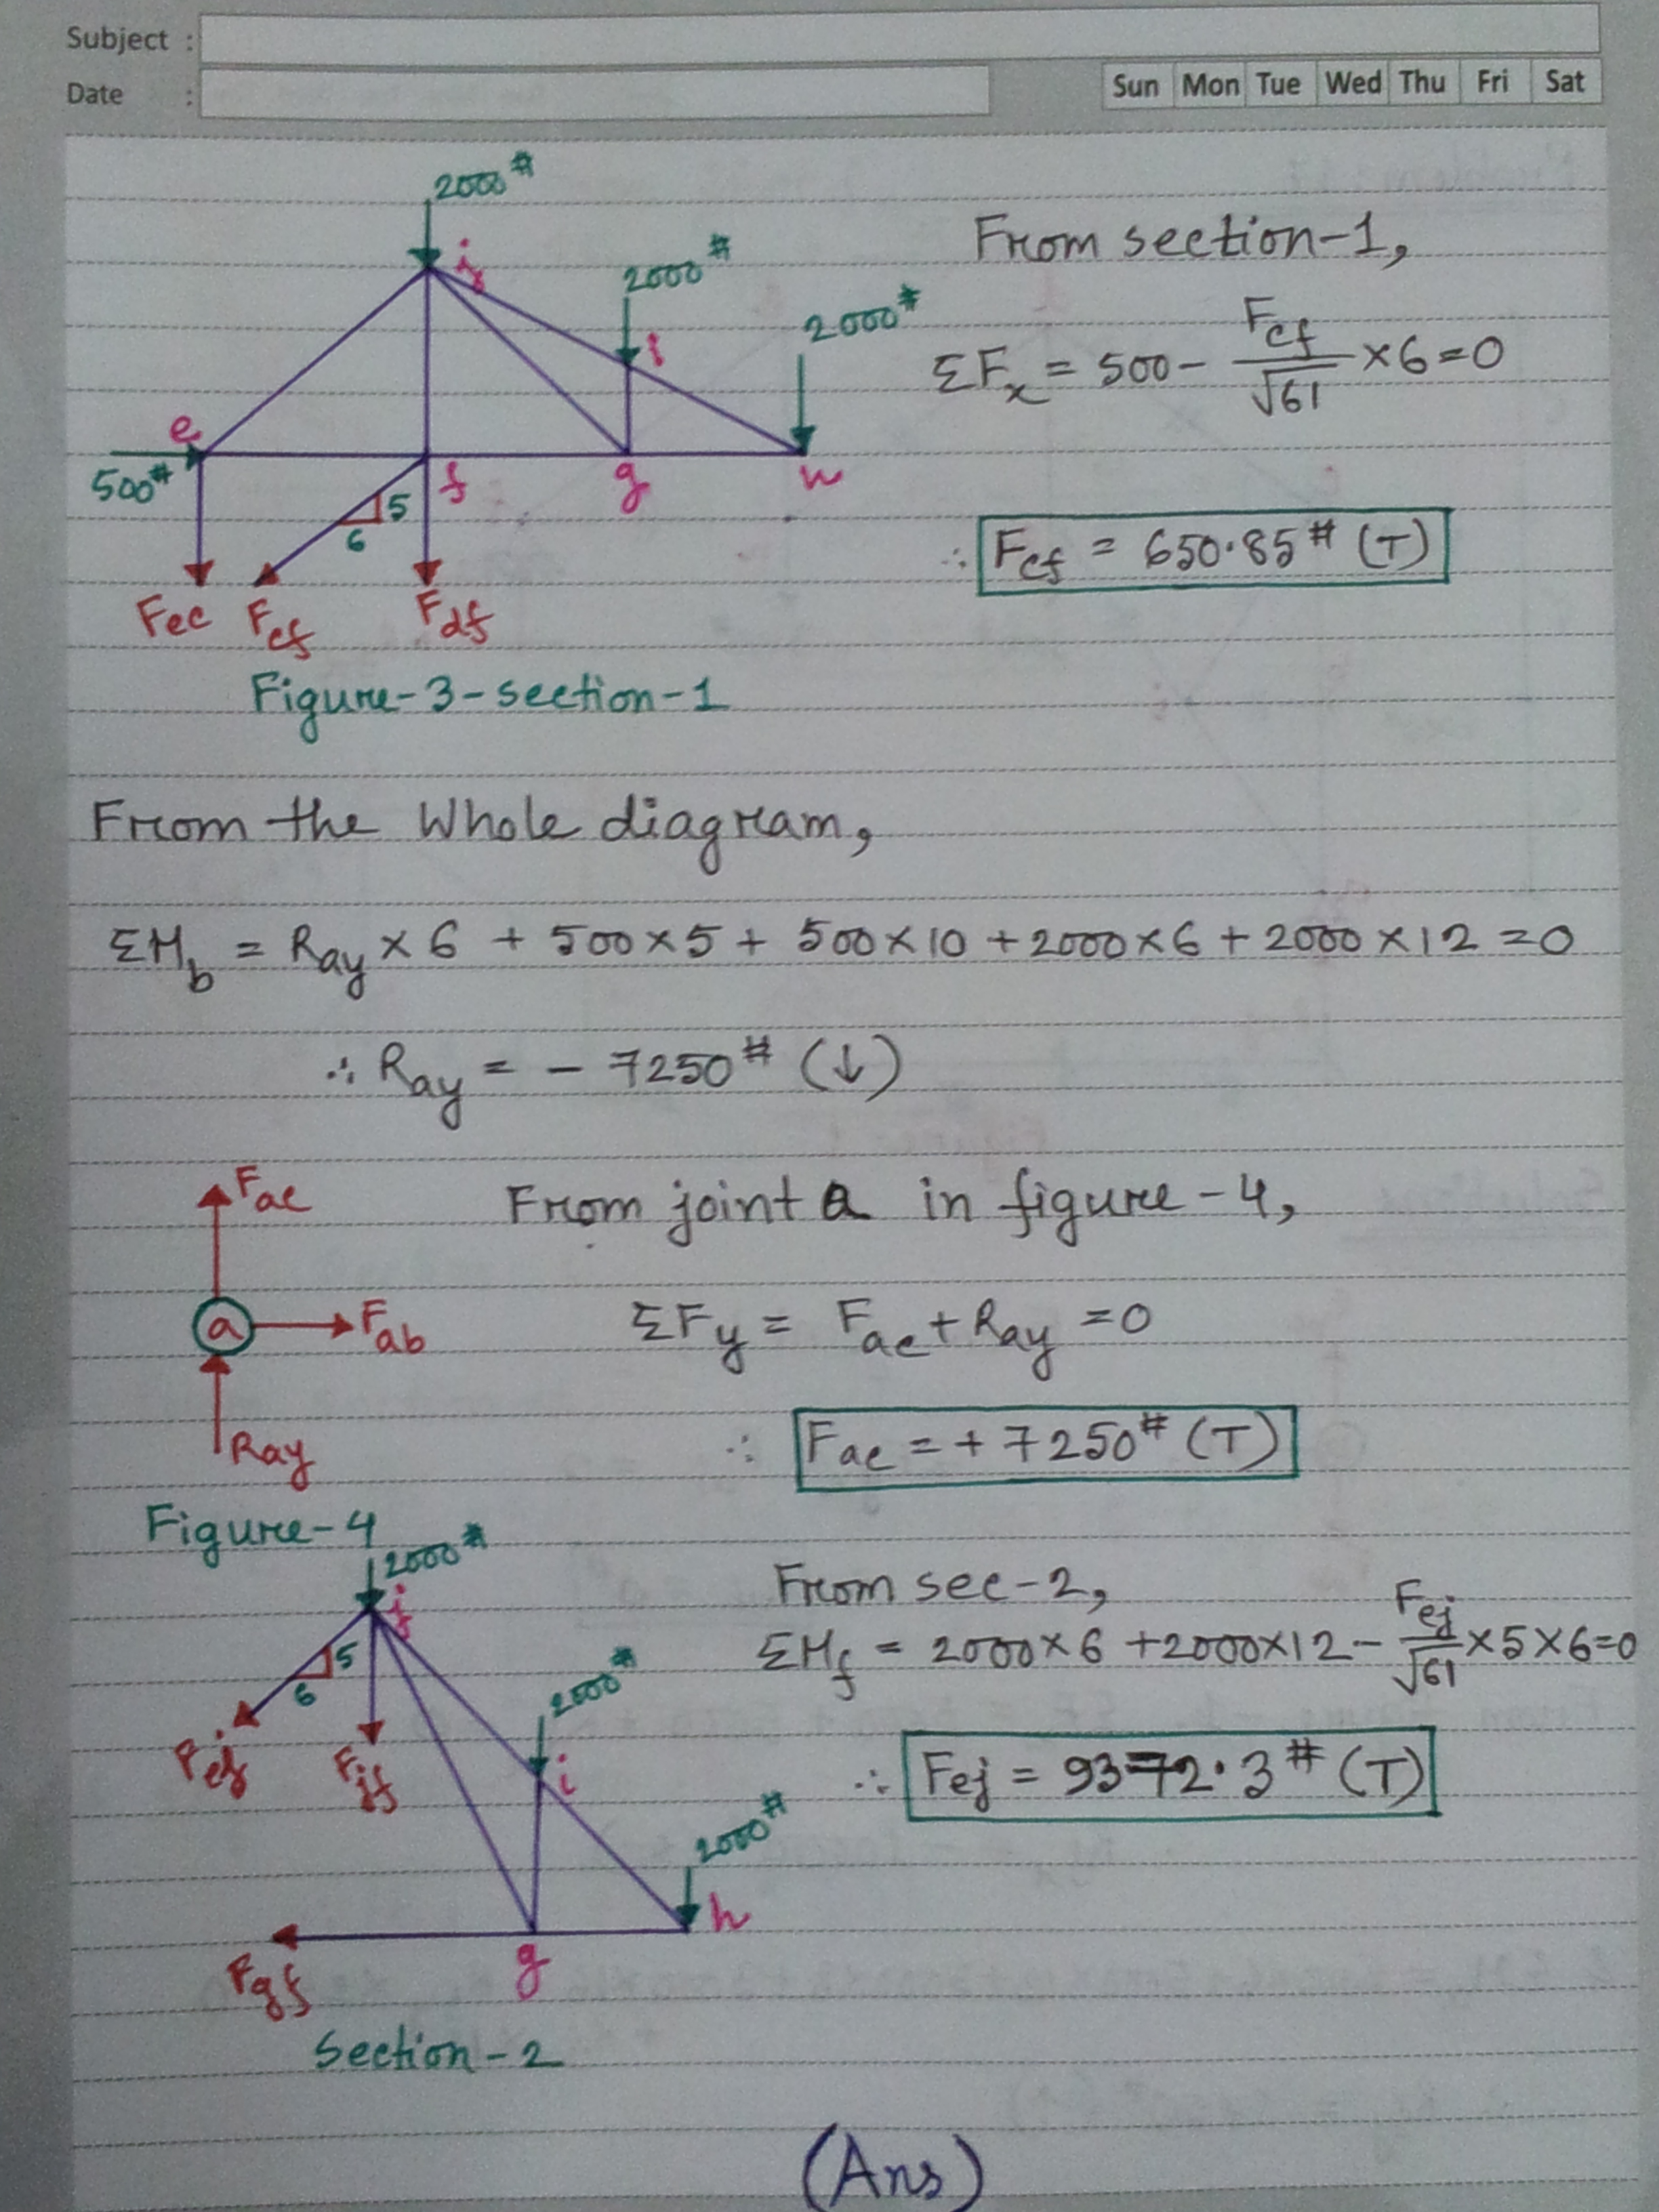 Subject :
Date :
Sun Mon Tue Wed Thu Fri Sat
2000#
j
2000#
i
2000#
e
500#
f
g
h
5
6
Fec Fcf Fdf
Figure-3-section-1
From section-1,
ΣFx = 500 - Fcf/√61 × 6 = 0
∴ Fcf = 650.85# (T)
From the Whole diagram,
ΣMb = Ray × 6 + 500 × 5 + 500 × 10 + 2000 × 6 + 2000 × 12 = 0
∴ Ray = - 7250# (↓)
Fac
a
Fab
Ray
Figure-4
From joint a in figure-4,
ΣFy = Fac + Ray = 0
∴ Fac = + 7250# (T)
2000#
j
5
6
Fej
Fjf
2000#
i
2000#
h
g
Fgf
Section-2
From sec-2,
ΣMf = 2000 × 6 + 2000 × 12 - Fej/√61 × 5 × 6 = 0
∴ Fej = 9372.3# (T)
(Ans)